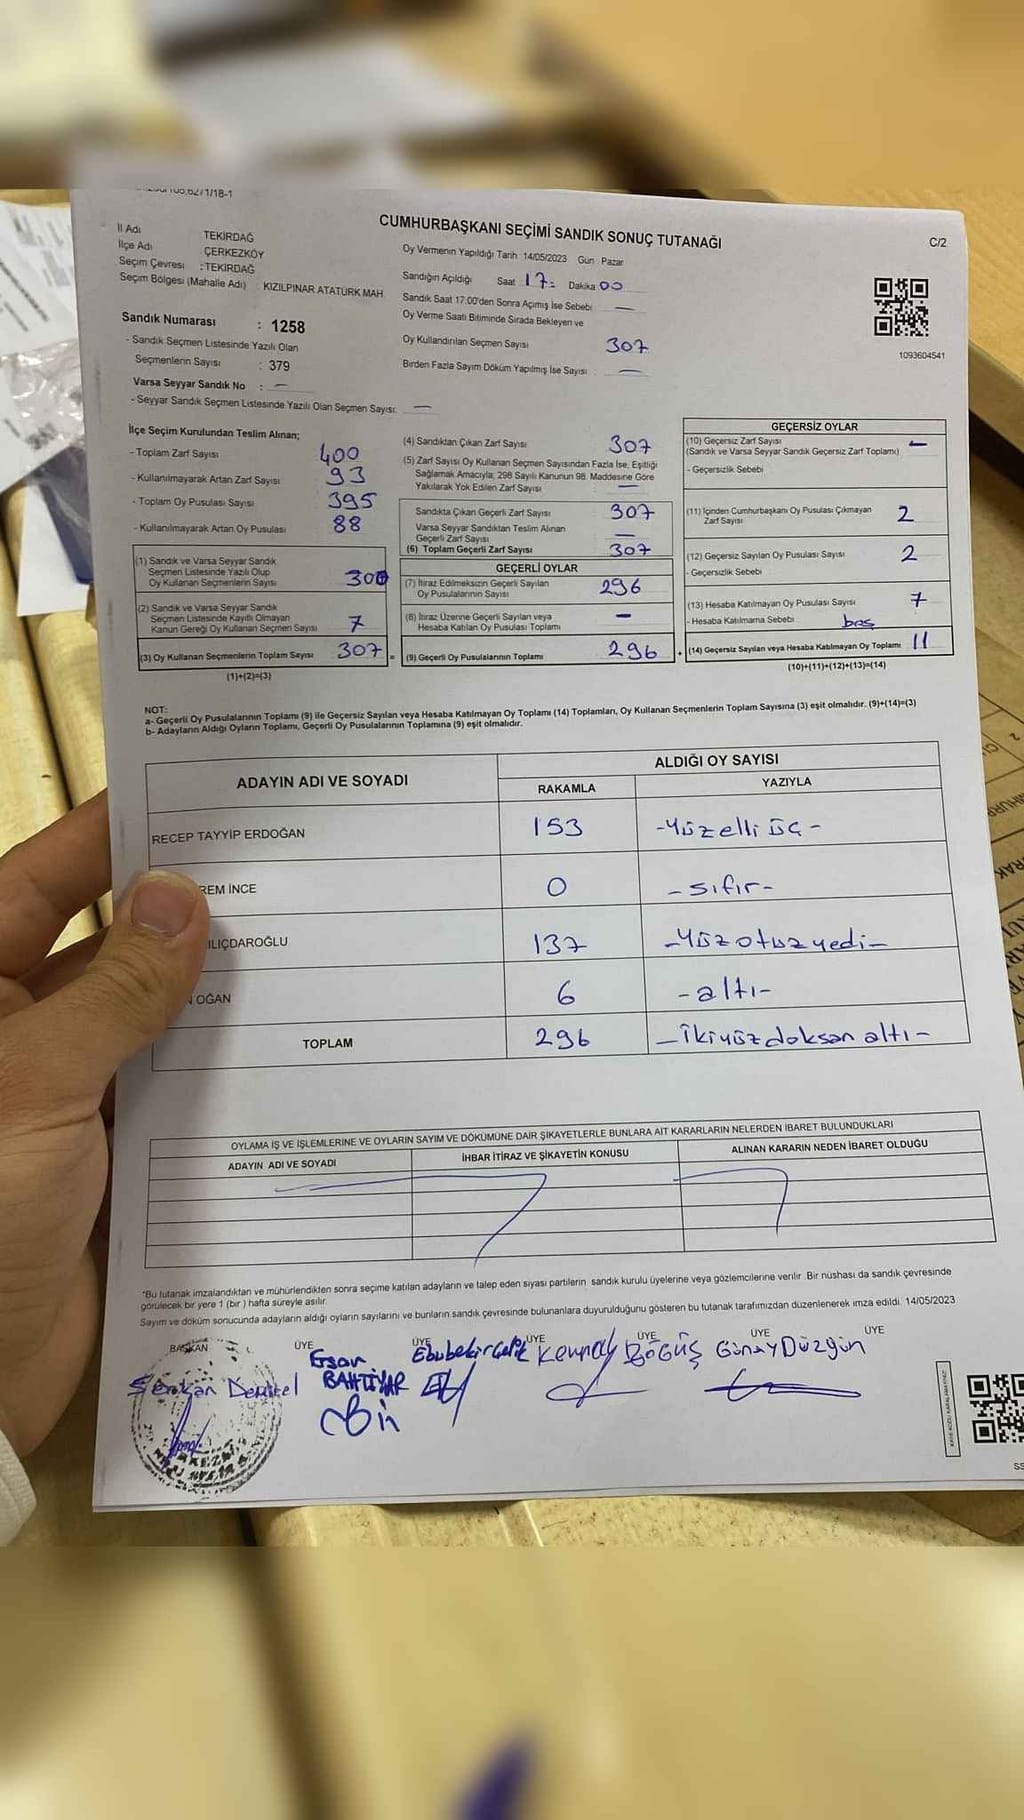 CUMHURBAŞKANI SEÇİMİ SANDIK SONUÇ TUTANAĞI
C/2
İl Adı : TEKİRDAĞ
İlçe Adı : ÇERKEZKÖY
Seçim Çevresi : TEKİRDAĞ
Seçim Bölgesi (Mahalle Adı) : KIZILPINAR ATATÜRK MAH
Sandık Numarası : 1258
- Sandık Seçmen Listesinde Yazılı Olan
Seçmenlerin Sayısı : 379
Varsa Seyyar Sandık No : —
- Seyyar Sandık Seçmen Listesinde Yazılı Olan Seçmen Sayısı: —
Oy Vermenin Yapıldığı Tarih 14/05/2023 Gün : Pazar
Sandığın Açıldığı Saat 17: Dakika 00
Sandık Saat 17:00'den Sonra Açımış İse Sebebi : —
Oy Verme Saati Bitiminde Sırada Bekleyen ve
Oy Kullandırılan Seçmen Sayısı 307
Birden Fazla Sayım Döküm Yapılmış İse Sayısı : —
1093604541
İlçe Seçim Kurulundan Teslim Alınan;
- Toplam Zarf Sayısı 400
- Kullanılmayarak Artan Zarf Sayısı 93
- Toplam Oy Pusulası Sayısı 395
- Kullanılmayarak Artan Oy Pusulası 88
(1) Sandık ve Varsa Seyyar Sandık
Seçmen Listesinde Yazılı Olup
Oy Kullanan Seçmenlerin Sayısı 300
(2) Sandık ve Varsa Seyyar Sandık
Seçmen Listesinde Kayıtlı Olmayan
Kanun Gereği Oy Kullanan Seçmen Sayısı 7
(3) Oy Kullanan Seçmenlerin Toplam Sayısı 307 =
(1)+(2)=(3)
(4) Sandıktan Çıkan Zarf Sayısı 307
(5) Zarf Sayısı Oy Kullanan Seçmen Sayısından Fazla İse, Eşitliği
Sağlamak Amacıyla, 298 Sayılı Kanunun 98. Maddesine Göre
Yakılarak Yok Edilen Zarf Sayısı —
Sandıkta Çıkan Geçerli Zarf Sayısı 307
Varsa Seyyar Sandıktan Teslim Alınan
Geçerli Zarf Sayısı —
(6) Toplam Geçerli Zarf Sayısı 307
GEÇERLİ OYLAR
(7) İtiraz Edilmeksizin Geçerli Sayılan
Oy Pusulalarının Sayısı 296
(8) İtiraz Üzerine Geçerli Sayılan veya
Hesaba Katılan Oy Pusulası Toplamı —
(9) Geçerli Oy Pusulalarının Toplamı 296 +
GEÇERSİZ OYLAR
(10) Geçersiz Zarf Sayısı —
(Sandık ve Varsa Seyyar Sandık Geçersiz Zarf Toplamı)
- Geçersizlik Sebebi
(11) İçinden Cumhurbaşkanı Oy Pusulası Çıkmayan
Zarf Sayısı 2
(12) Geçersiz Sayılan Oy Pusulası Sayısı 2
- Geçersizlik Sebebi
(13) Hesaba Katılmayan Oy Pusulası Sayısı 7
- Hesaba Katılmama Sebebi boş
(14) Geçersiz Sayılan veya Hesaba Katılmayan Oy Toplamı 11
(10)+(11)+(12)+(13)=(14)
NOT:
a- Geçerli Oy Pusulalarının Toplamı (9) ile Geçersiz Sayılan veya Hesaba Katılmayan Oy Toplamı (14) Toplamları, Oy Kullanan Seçmenlerin Toplam Sayısına (3) eşit olmalıdır. (9)+(14)=(3)
b- Adayların Aldığı Oyların Toplamı, Geçerli Oy Pusulalarının Toplamına (9) eşit olmalıdır.
ADAYIN ADI VE SOYADI ALDIĞI OY SAYISI
RAKAMLA YAZIYLA
RECEP TAYYİP ERDOĞAN 153 -Yüzelli üç-
REM İNCE 0 -sıfır-
ILIÇDAROĞLU 137 -Yüzotuzyedi-
OĞAN 6 -altı-
TOPLAM 296 -İkiyüzdoksan altı-
OYLAMA İŞ VE İŞLEMLERİNE VE OYLARIN SAYIM VE DÖKÜMÜNE DAİR ŞİKAYETLERLE BUNLARA AİT KARARLARIN NELERDEN İBARET BULUNDUKLARI
ADAYIN ADI VE SOYADI İHBAR İTİRAZ VE ŞİKAYETİN KONUSU ALINAN KARARIN NEDEN İBARET OLDUĞU
*Bu tutanak imzalandıktan ve mühürlendikten sonra seçime katılan adayların ve talep eden siyasi partilerin sandık kurulu üyelerine veya gözlemcilerine verilir. Bir nushası da sandık çevresinde
görülecek bir yere 1 (bir) hafta süreyle asılır.
Sayım ve döküm sonucunda adayların aldığı oyların sayılarını ve bunların sandık çevresinde bulunanlara duyurulduğunu gösteren bu tutanak tarafımızdan düzenlenerek imza edildi. 14/05/2023
BAŞKAN ÜYE ÜYE ÜYE ÜYE ÜYE ÜYE
Serkan Demirel
Ersan
BAHTİYAR
Ebubekir Çelik
BÖGÜŞ
Günay Düzgün